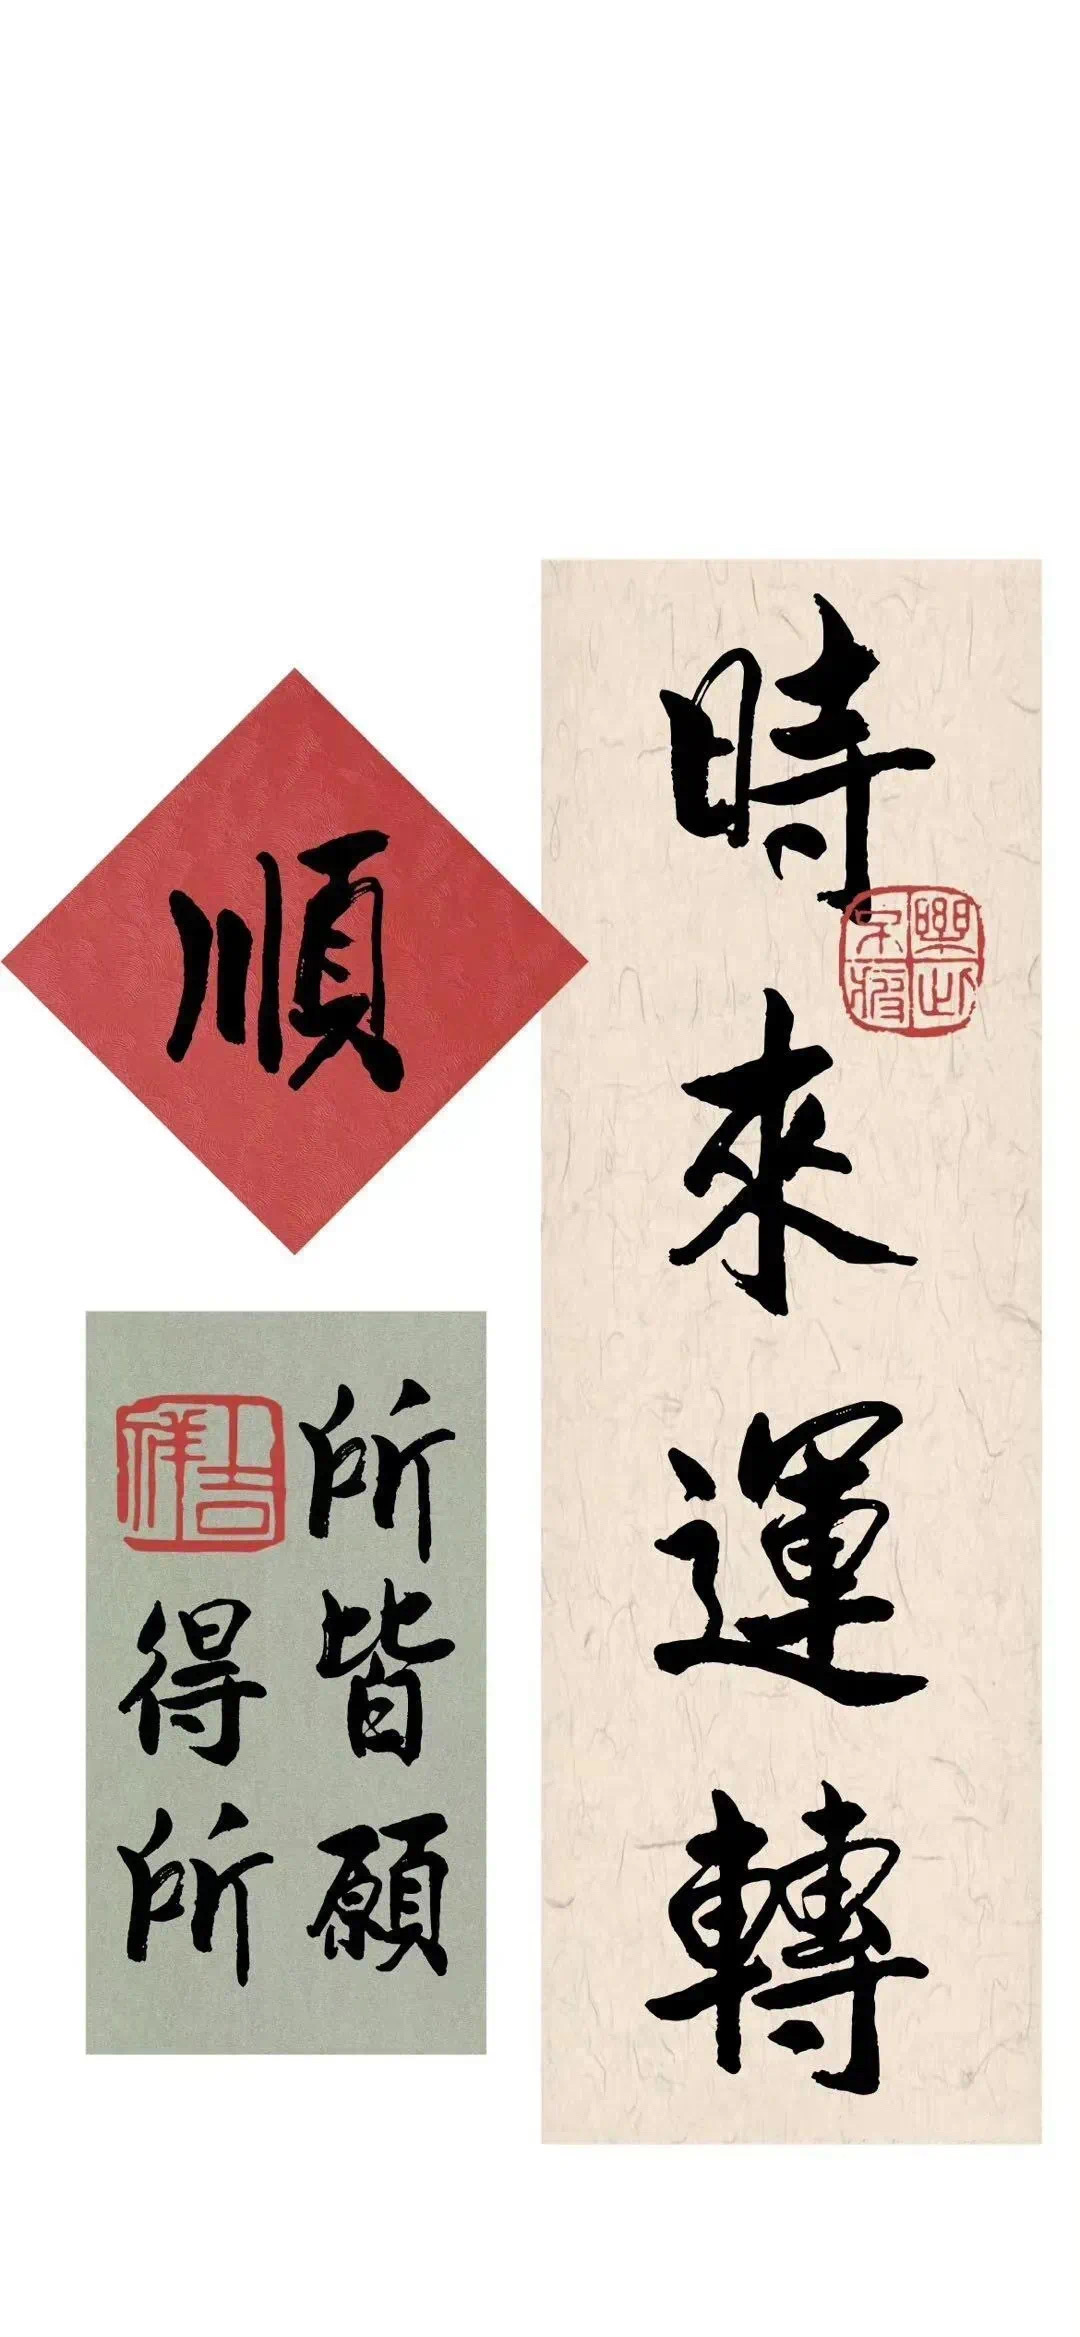 時來運轉
順
吉祥
所
得皆
所願